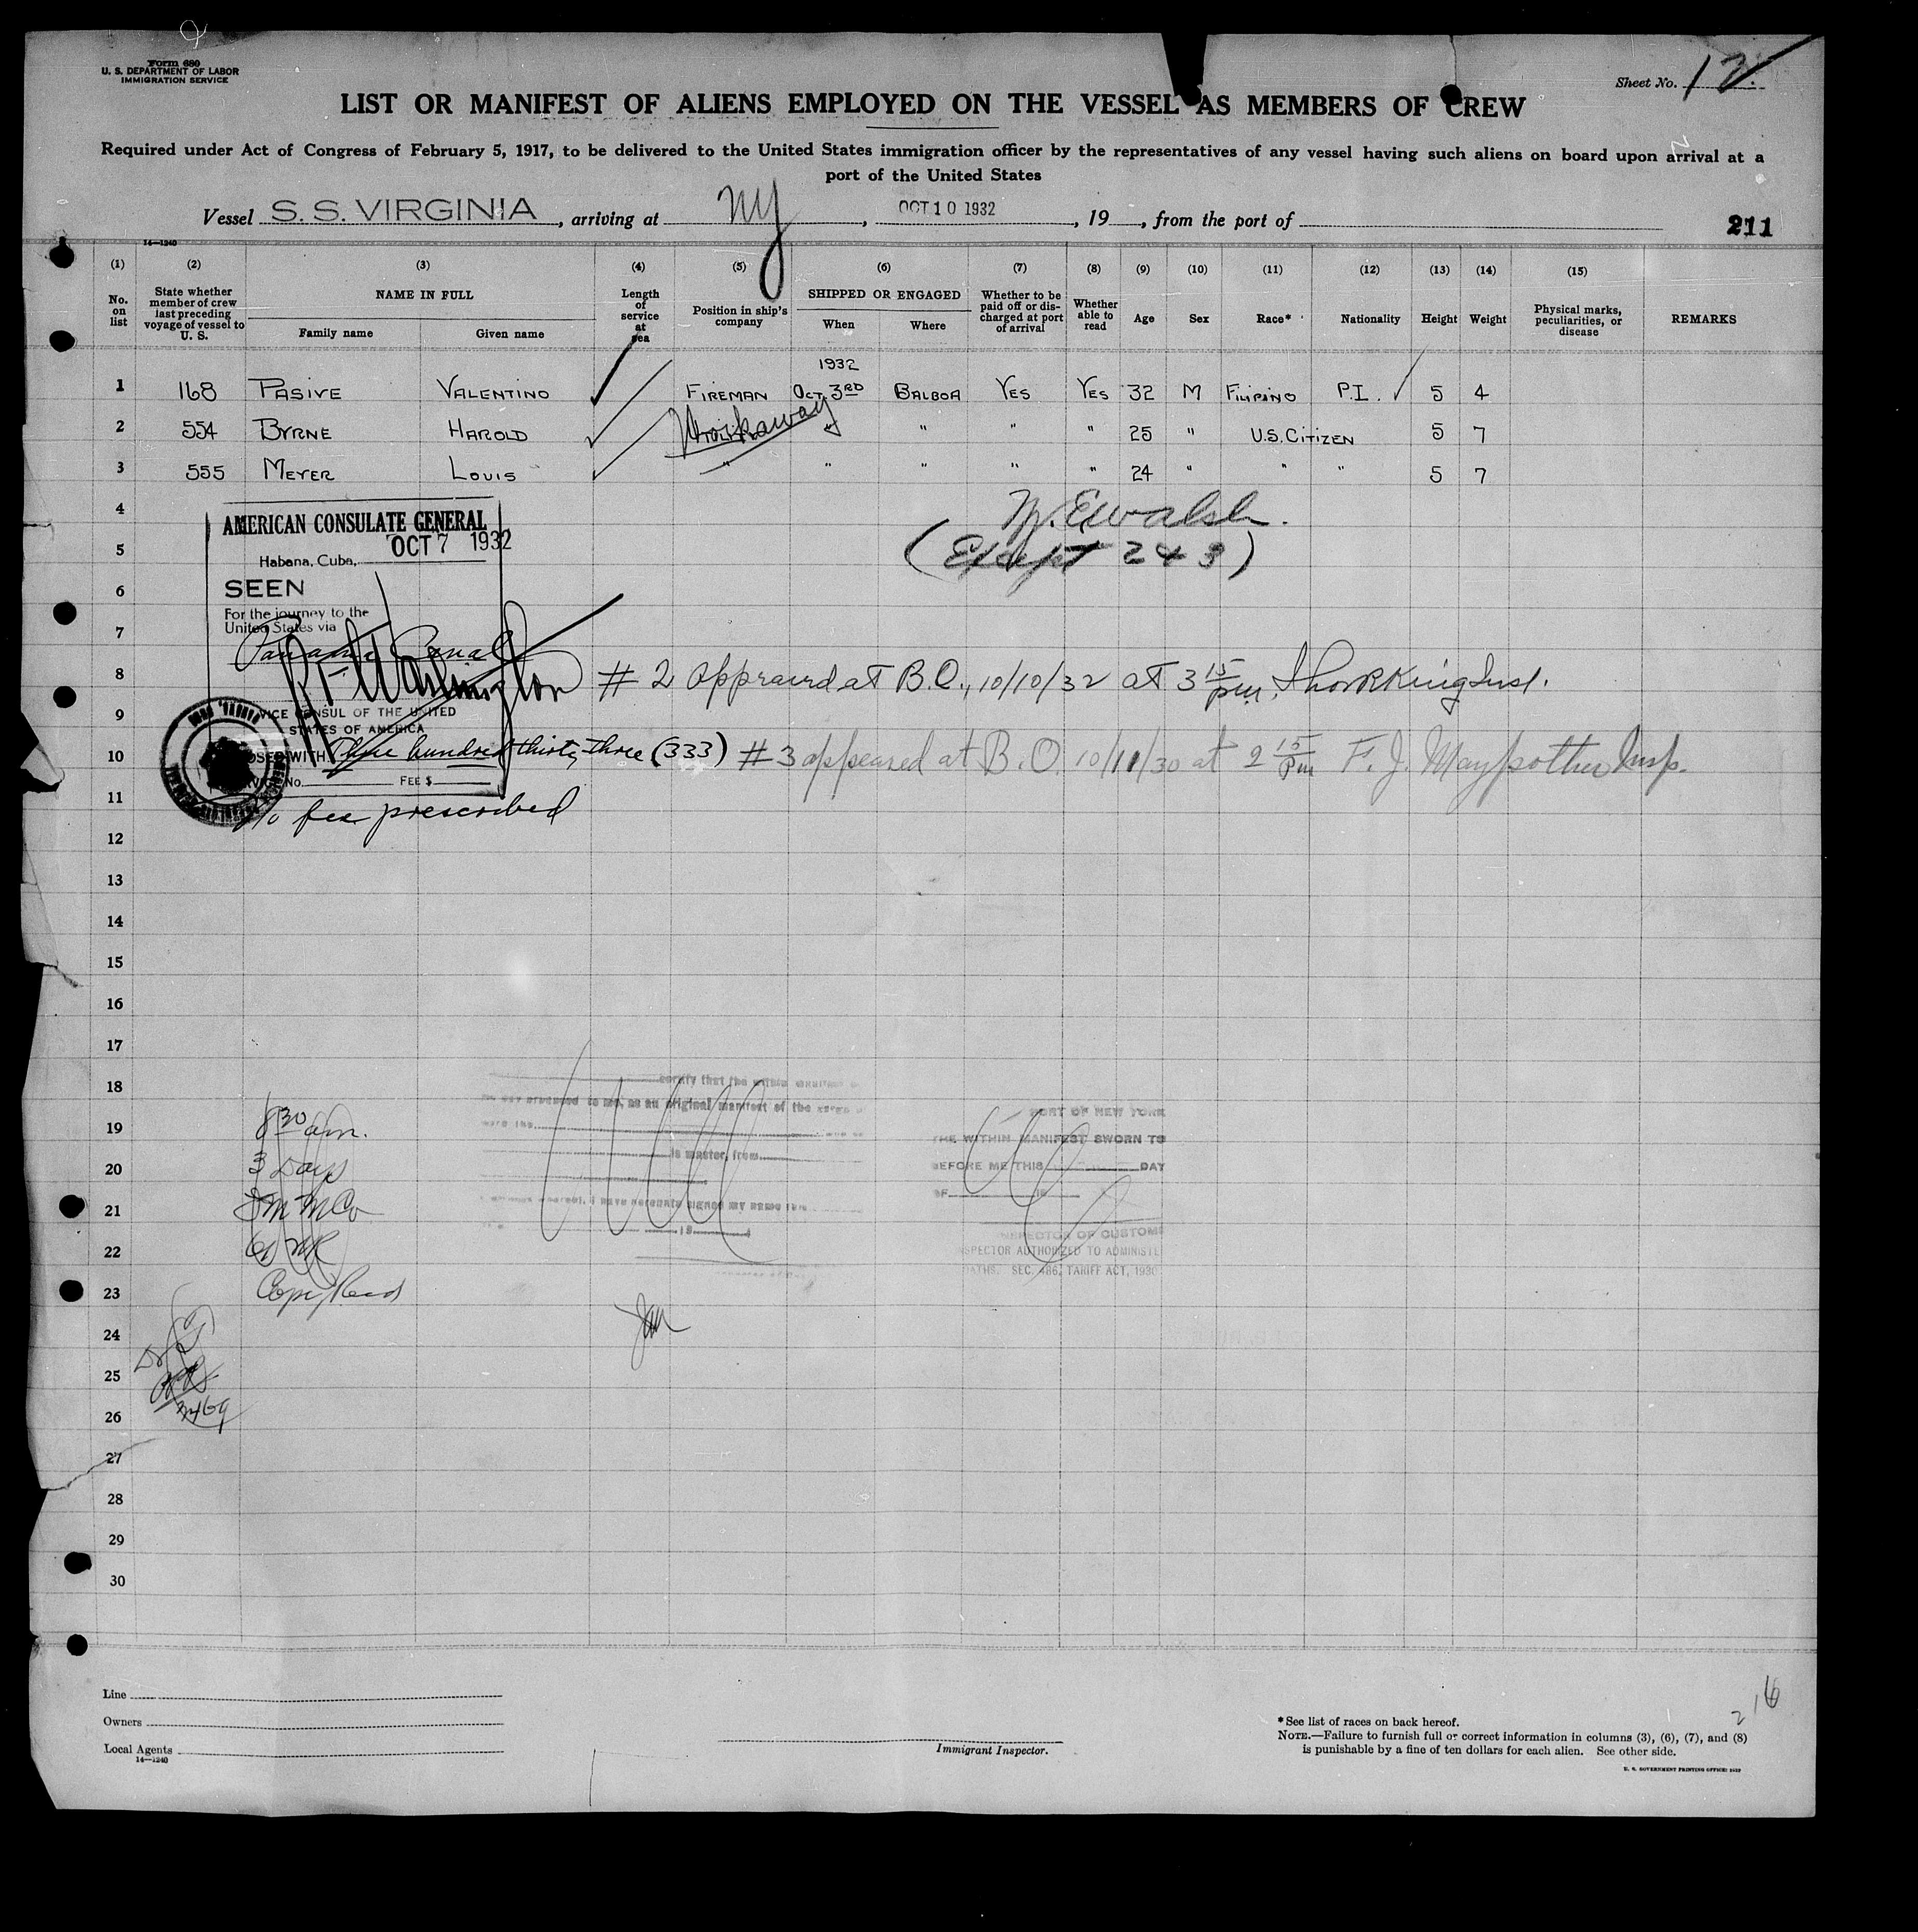 Form 680
U. S. DEPARTMENT OF LABOR
IMMIGRATION SERVICE
Sheet No. 12
LIST OR MANIFEST OF ALIENS EMPLOYED ON THE VESSEL AS MEMBERS OF CREW
Required under Act of Congress of February 5, 1917, to be delivered to the United States immigration officer by the representatives of any vessel having such aliens on board upon arrival at a
port of the United States
Vessel S. S. VIRGINIA, arriving at NY, OCT 10 1932, 19__, from the port of
211
14—1240
(1) (2) (3) (4) (5) (6) (7) (8) (9) (10) (11) (12) (13) (14) (15)
No. on list
State whether member of crew last preceding voyage of vessel to U. S.
NAME IN FULL
Family name
Given name
Length of service at sea
Position in ship's company
SHIPPED OR ENGAGED
When
Where
Whether to be paid off or discharged at port of arrival
Whether able to read
Age
Sex
Race*
Nationality
Height
Weight
Physical marks, peculiarities, or disease
REMARKS
1932
1 168 PASIVE VALENTINO FIREMAN OCT. 3RD BALBOA YES YES 32 M FILIPINO P.I. 5 4
2 554 BYRNE HAROLD Workaway " " " " 25 " U.S. CITIZEN 5 7
3 555 MEYER LOUIS " " " " " 24 " " " 5 7
4
AMERICAN CONSULATE GENERAL
OCT 7 1932
5
Habana, Cuba,
(Except 2 & 3)
6
SEEN
For the journey to the
United States via
7
Panama Canal
8
# 2 appeared at B.O., 10/10/32 at 3 15 pm,
9
VICE CONSUL OF THE UNITED
STATES OF AMERICA
10
WITH Three hundred thirty three (333)
# 3 appeared at B.O. 10/11/30 at 2 15 Pm F. J. Maypother Insp.
No. FEE $
11
No fee prescribed
12
13
14
15
16
17
18
certify that the within
to me, as an original manifest of the
is master, from
PORT OF NEW YORK
THE WITHIN MANIFEST SWORN TO
BEFORE ME THIS DAY
OF 19
INSPECTOR OF CUSTOMS
INSPECTOR AUTHORIZED TO ADMINISTE
OATHS. SEC. 486, TARIFF ACT, 1930
19
8 30 am.
20
3 Days
21
I M M Co
22
23
24
25
26
27
28
29
30
Line
Owners
Local Agents
14—1240
Immigrant Inspector.
*See list of races on back hereof.
NOTE.—Failure to furnish full or correct information in columns (3), (6), (7), and (8)
is punishable by a fine of ten dollars for each alien. See other side.